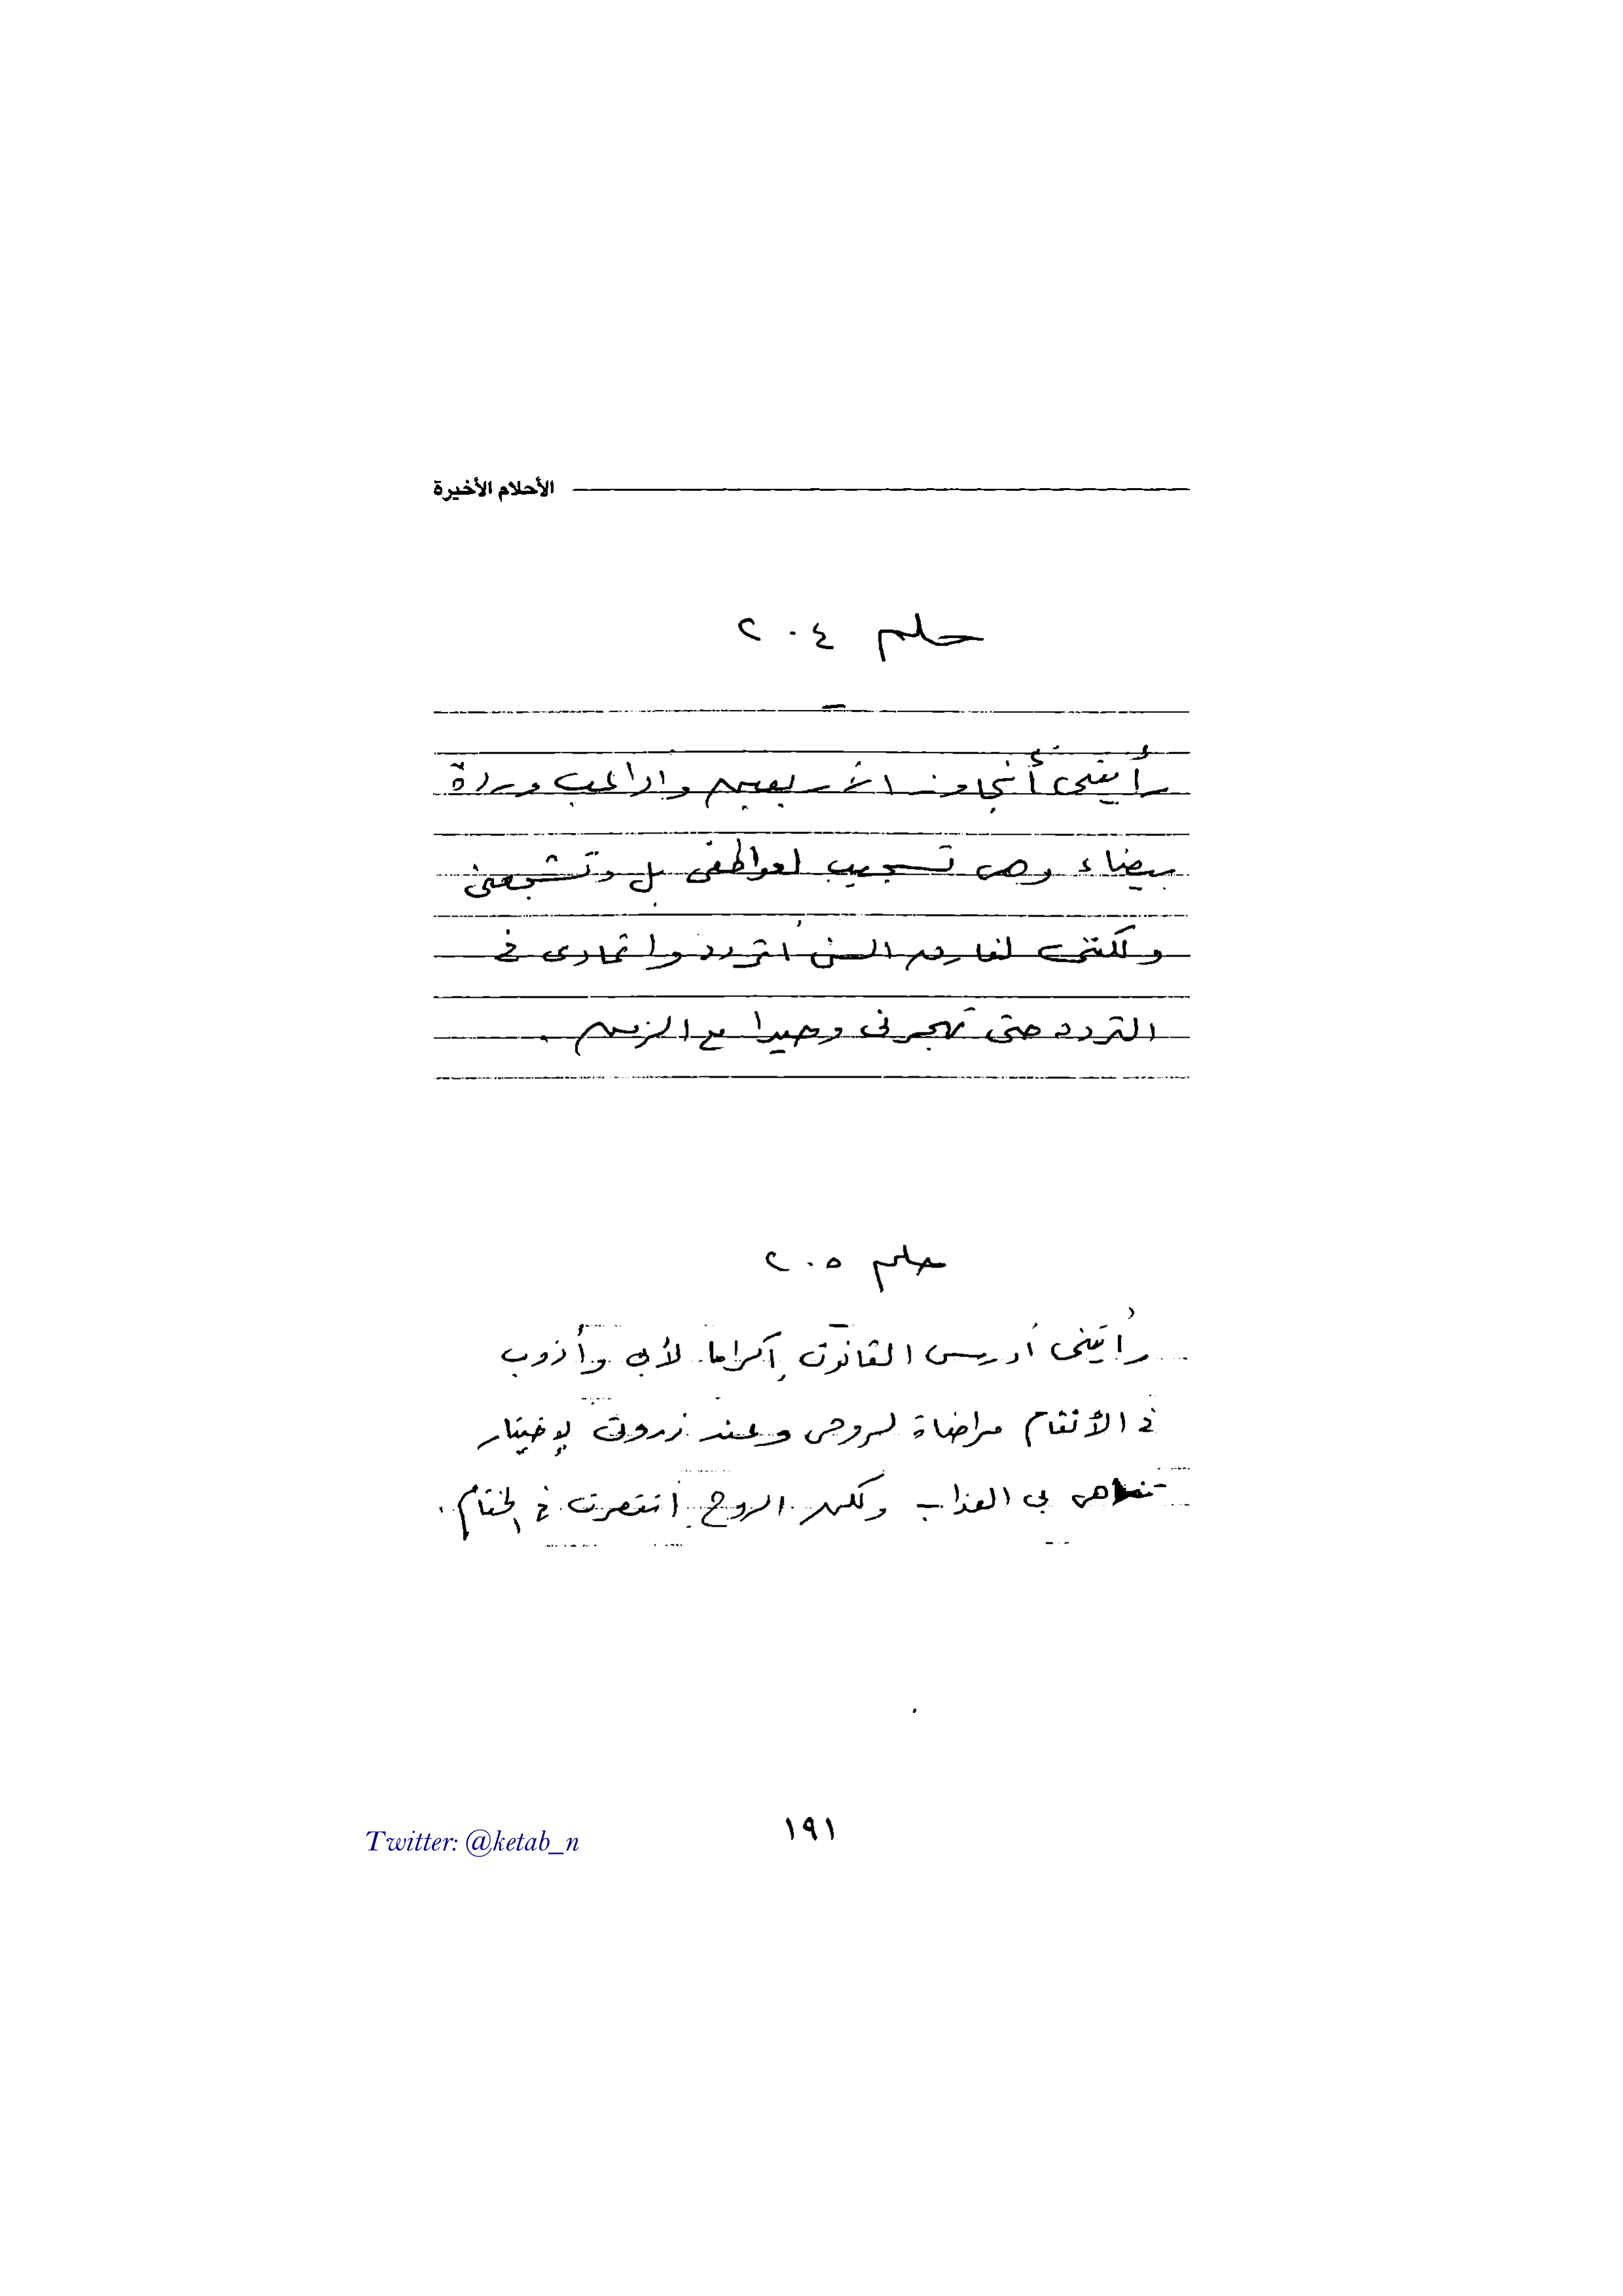 الأحلام الأخيرة
حلم ٢٠٤
رأيتنى أتجاوز الأربعين وأداعب وردة
بيضاء وهى تستجيب لعواطفى بل وتشجعنى
ولكننى لفارق السن أتردد وأتمادى فى
التردد حتى تهجرنى وحيدا مع الزمن .
حلم ٢٠٥
رأيتنى أدرس القانون إكراما لأبى وأذوب
فى الأنغام مراضاة لروحى وعند الإختيار
بى العذاب ولكن الروح انتصرت فى الختام .
١٩١
Twitter: @ketab_n